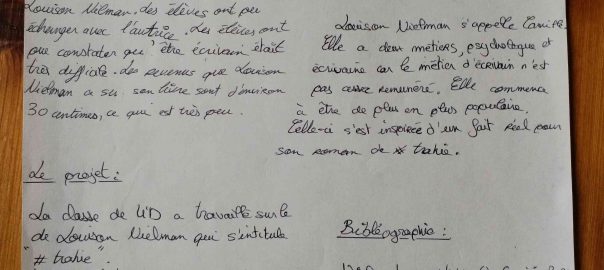 Louison Nielman, des élèves ont pu
échanger avec l'autrice. Les élèves ont
pu constater qu'être écrivain était
très difficile. Les revenus que Louison
Nielman a su son livre sont d'environ
30 centimes, ce qui est très peu.
Le projet :
La classe de 4°D a travaillé sur le
de Louison Nielman qui s'intitule
"# trahie".
Louison Nielman s'appelle Camille.
Elle a deux métiers, psychologue et
écrivaine car le métier d'écrivain n'est
pas assez rémunéré. Elle commence
à être de plus en plus populaire.
Celle-ci s'est inspirée d'un fait réel pour
son roman de # trahie.
Bibliographie :